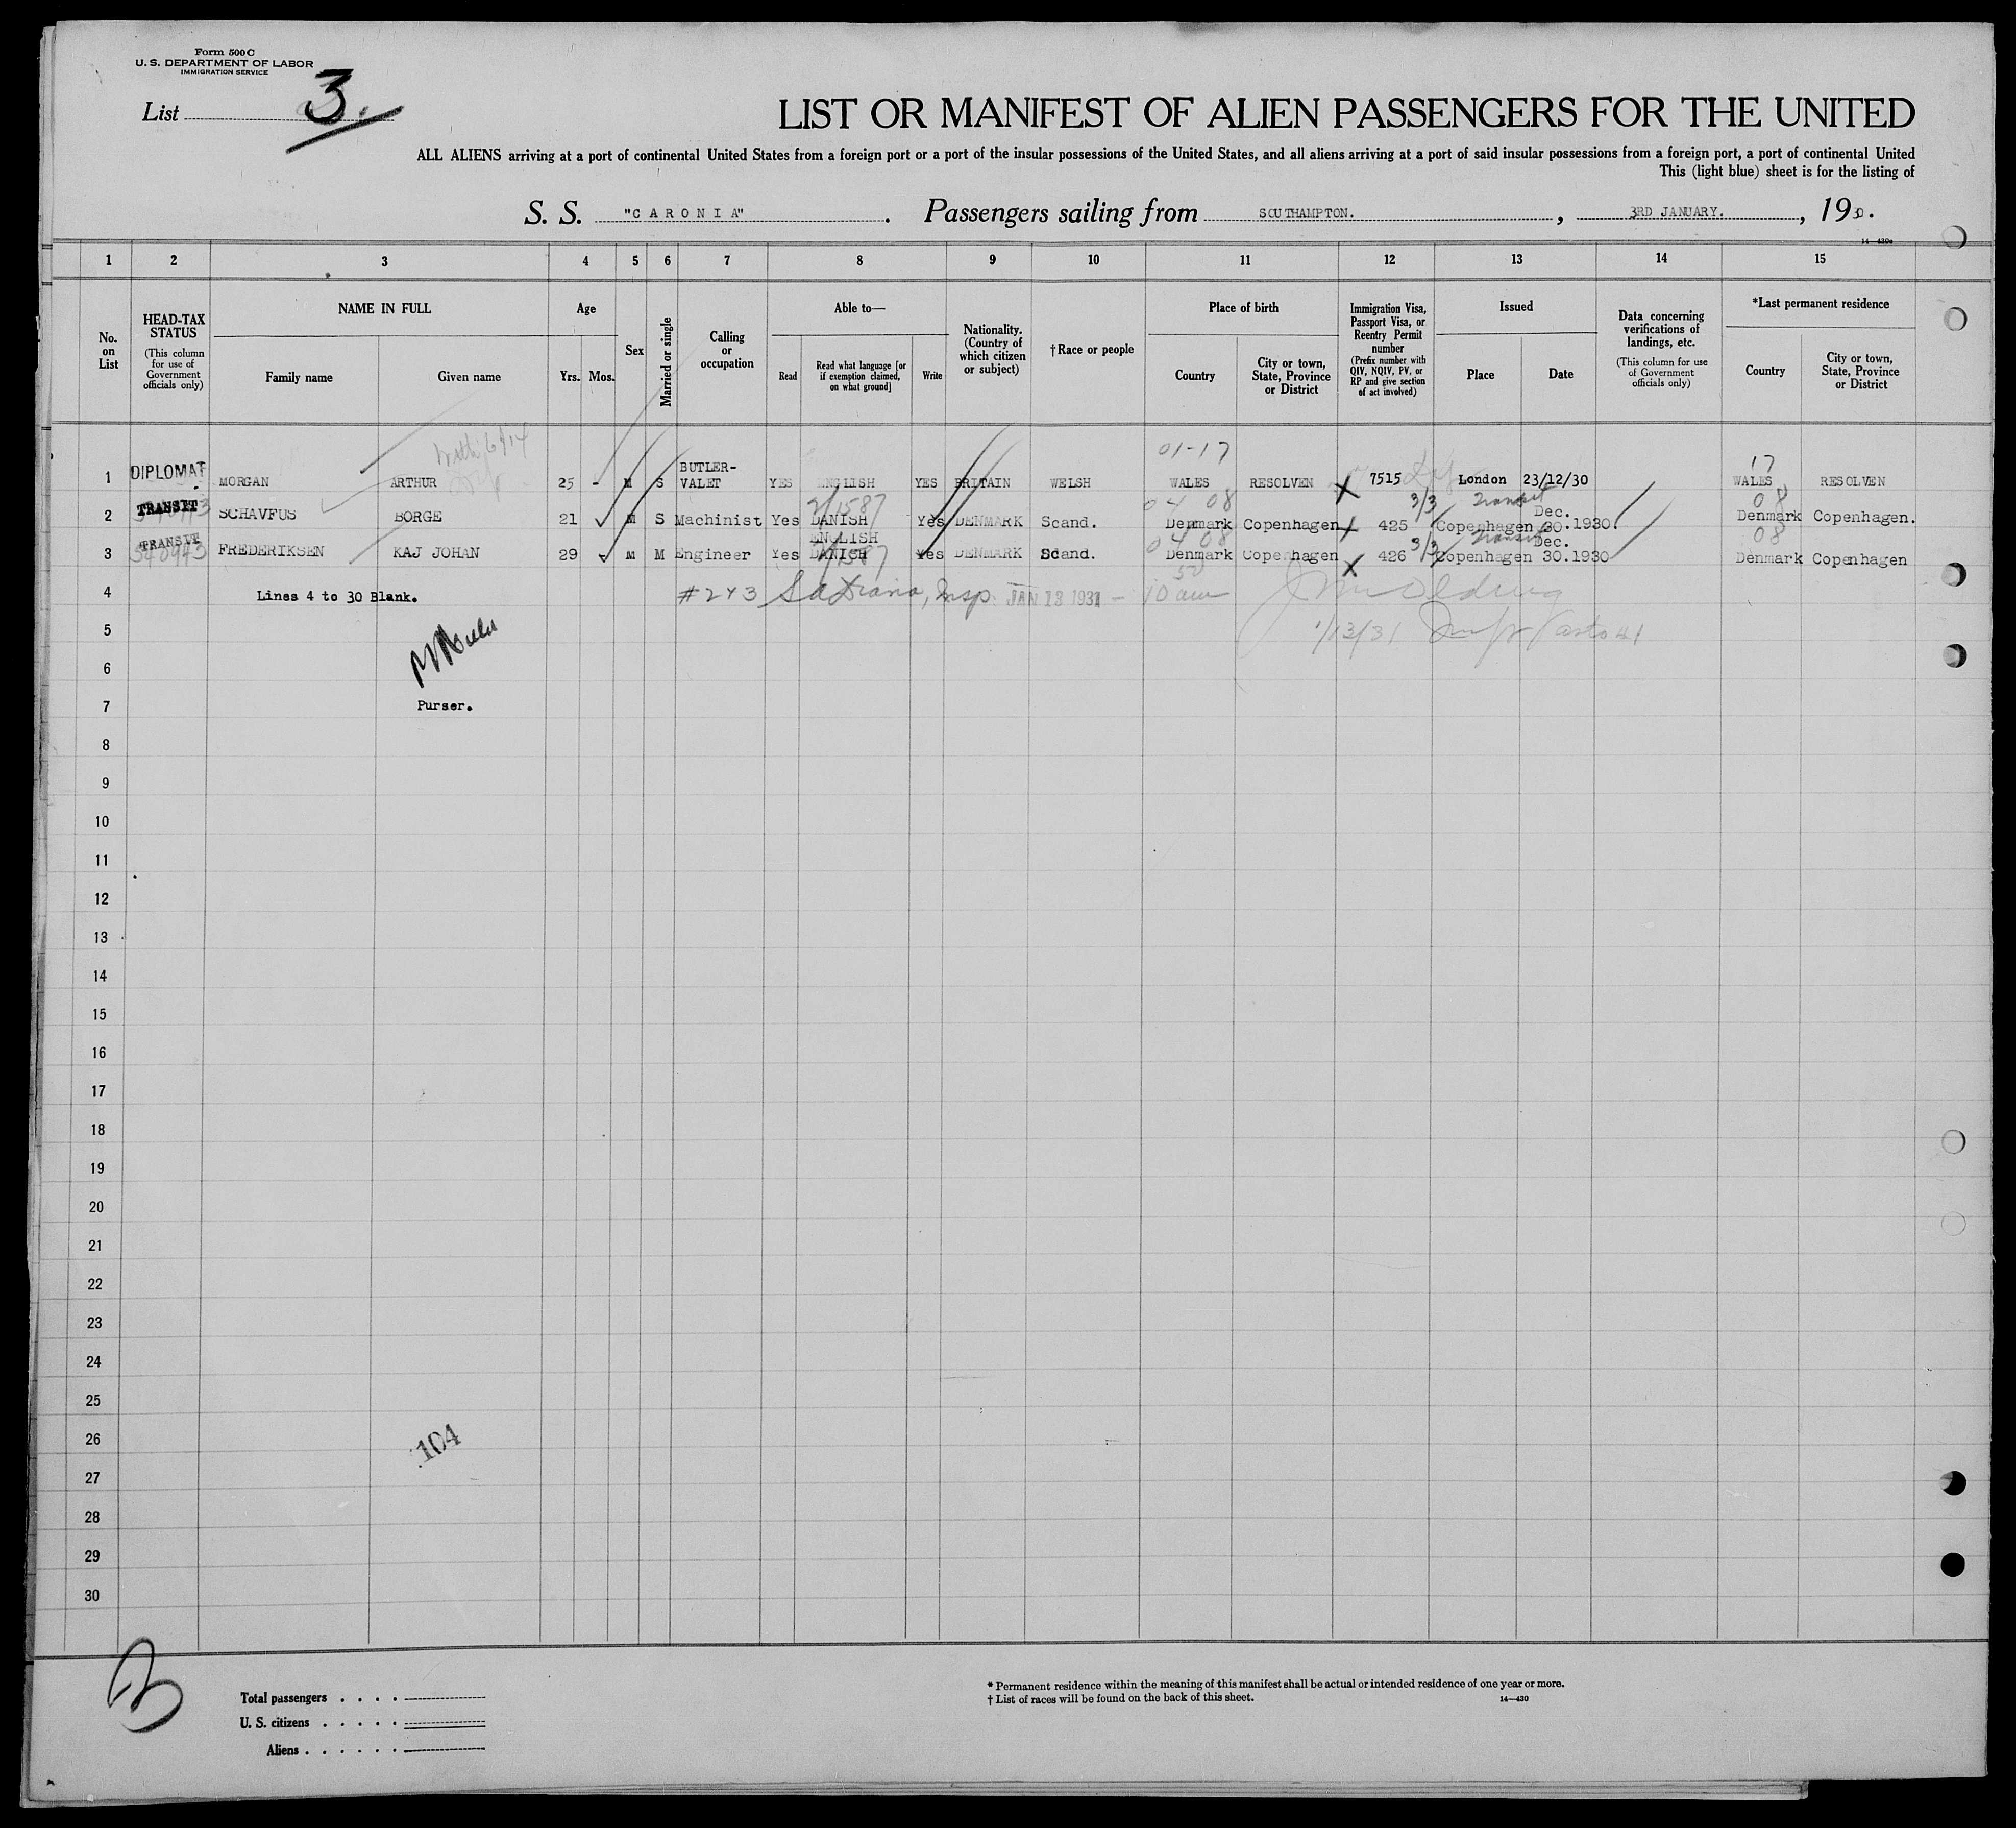 Form 500 C
U. S. DEPARTMENT OF LABOR
IMMIGRATION SERVICE
List 3.
LIST OR MANIFEST OF ALIEN PASSENGERS FOR THE UNITED
ALL ALIENS arriving at a port of continental United States from a foreign port or a port of the insular possessions of the United States, and all aliens arriving at a port of said insular possessions from a foreign port, a port of continental United
This (light blue) sheet is for the listing of
S. S. "CARONIA". Passengers sailing from SOUTHAMPTON., 3RD JANUARY., 1930.
14—430a
1 2 3 4 5 6 7 8 9 10 11 12 13 14 15
No. on List
HEAD-TAX STATUS (This column for use of Government officials only)
NAME IN FULL
Family name Given name
Age
Yrs. Mos.
Sex
Married or single
Calling or occupation
Able to—
Read Read what language [or if exemption claimed, on what ground] Write
Nationality. (Country of which citizen or subject)
†Race or people
Place of birth
Country City or town, State, Province or District
Immigration Visa, Passport Visa, or Reentry Permit number (Prefix number with QIV, NQIV, PV, or RP and give section of act involved)
Issued
Place Date
Data concerning verifications of landings, etc. (This column for use of Government officials only)
*Last permanent residence
Country City or town, State, Province or District
01-17 17
1 DIPLOMAT MORGAN ARTHUR 25 - M S BUTLER-VALET YES ENGLISH YES BRITAIN WELSH WALES RESOLVEN 7515 London 23/12/30 WALES RESOLVEN
2/1587 04 08 3/3 Transit 08
2 TRANSIT SCHAVFUS BORGE 21 M S Machinist Yes DANISH ENGLISH Yes DENMARK Scand. Denmark Copenhagen 425 Copenhagen Dec. 30.1930. Denmark Copenhagen.
04 08 3/3 Transit 08
3 TRANSIT 540943 FREDERIKSEN KAJ JOHAN 29 M M Engineer Yes DANISH Yes DENMARK Scand. Denmark Copenhagen 426 Copenhagen Dec. 30.1930 Denmark Copenhagen
4 Lines 4 to 30 Blank. #243 Insp. JAN 13 1931 — 10 am
5 1/13/31
6
7 Purser.
8
9
10
11
12
13
14
15
16
17
18
19
20
21
22
23
24
25
26 104
27
28
29
30
3
Total passengers . . . .
U. S. citizens . . . . .
Aliens . . . . . .
* Permanent residence within the meaning of this manifest shall be actual or intended residence of one year or more.
† List of races will be found on the back of this sheet. 14—430